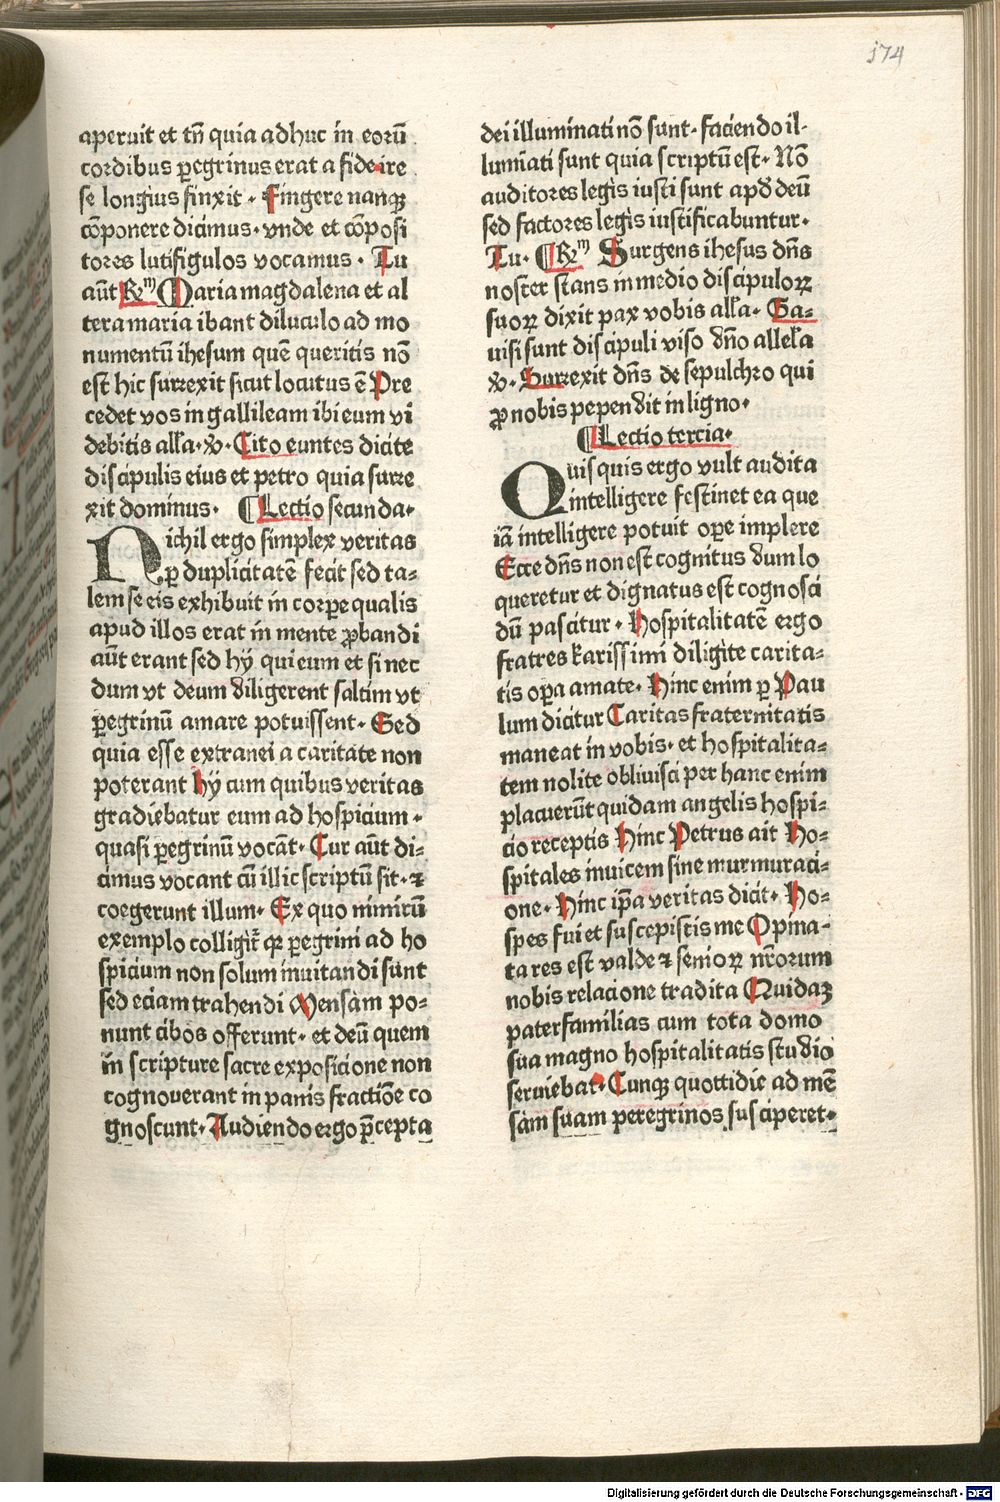 174
aperuit et tñ quia adhuc in eorū
cordibus ꝑegrinus erat a fide ire
se longius finxit · Fingere nanqꝫ
cōponere dicimus · vnde et cōposi
tores lutifigulos vocamus · Tu
aūt ℞m Maria magdalena et al
tera maria ibant diluculo ad mo
numentū ihesum quē queritis nō
est hic surrexit sicut locutus ē Pre
cedet vos in gallileam ibi eum vi
debitis alľa · ꝟ · Cito euntes dicite
discipulis eius et petro quia surre
xit dominus · ¶ Lectio secunda ·
Nichil ergo simplex veritas
ꝑ duplicitatē fecit sed ta⸗
lem se eis exhibuit in corꝑe qualis
apud illos erat in mente ꝓbandi
aūt erant sed hÿ qui eum et si nec
dum vt deum diligerent saltim vt
ꝑegrinū amare potuissent · Sed
quia esse extranei a caritate non
poterant hÿ cum quibus veritas
gradiebatur eum ad hospicium ·
quasi ꝑegrinū vocāt · Cur aūt di⸗
cimus vocant cū illic scriptū sit · ⁊
coegerunt illum · Ex quo nimirū
exemplo colligit̄ ꝙ ꝑegrini ad ho
spicium non solum inuitandi sunt
sed eciam trahendi Mensam po⸗
nunt cibos offerunt · et deū quem
in scripture sacre exposicione non
cognouerant in panis fractiōe co
gnoscunt · Audiendo ergo p̄cepta
dei illuminati nō sunt · faciendo il⸗
luminati sunt quia scriptū est · Nō
auditores legis iusti sunt apđ deū
sed factores legis iustificabuntur ·
Tu · ¶ ℞m Surgens ihesus dn̄s
noster stans in medio discipuloꝝ
suoꝝ dixit pax vobis alľa · Ga⸗
uisi sunt discipuli viso dño alleľa
ꝟ · Surrexit dn̄s de sepulchro qui
ꝓ nobis pependit in ligno ·
¶ Lectio tercia ·
Quisquis ergo vult audita
intelligere festinet ea que
iā intelligere potuit oꝑe implere
Ecce dn̄s non est cognitus dum lo
queretur et dignatus est cognosci
dū pascitur · Hospitalitatē ergo
fratres karissimi diligite carita⸗
tis oꝑa amate · Hinc enim ꝑ Pau
lum dicitur Caritas fraternitatis
maneat in vobis · et hospitalita⸗
tem nolite obliuisci per hanc enim
placuerūt quidam angelis hospi⸗
cio receptis Hinc Petrus ait Ho⸗
spitales inuicem sine murmuraci⸗
one · Hinc ip̄a veritas dicit · Ho⸗
spes fui et suscepistis me Opina⸗
ta res est valde ⁊ senioꝝ nr̄orum
nobis relacione tradita Quidaꝫ
paterfamilias cum tota domo
sua magno hospitalitatis studio
seruiebat · Cunqꝫ quottidie ad mē
sam suam peregrinos susciperet ·
Digitalisierung gefördert durch die Deutsche Forschungsgemeinschaft - DFG